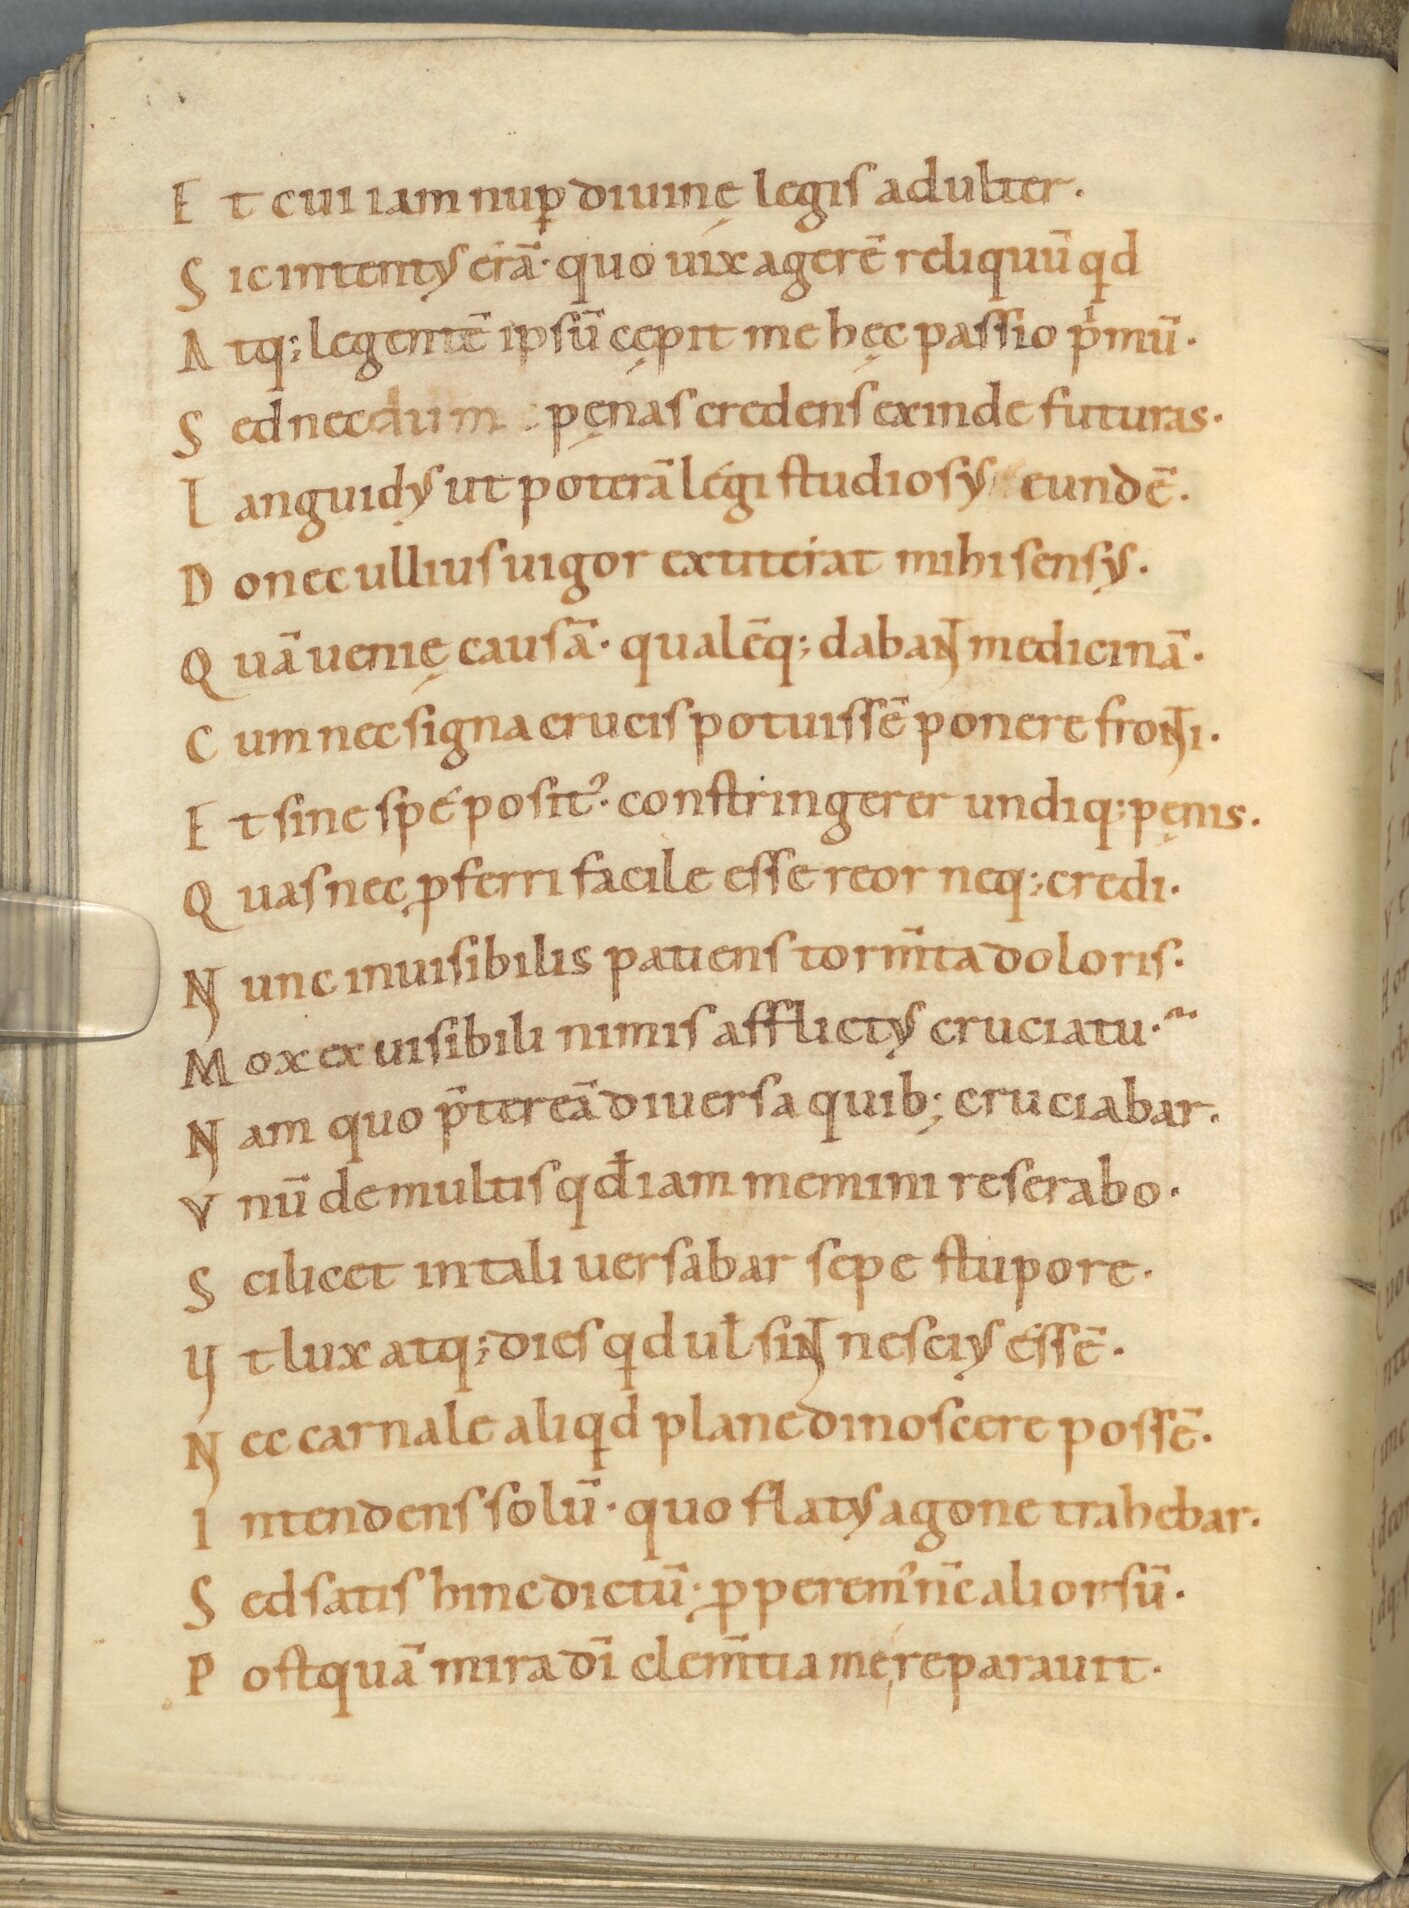 E t cui iam nuꝑ diuinę legis adulter.
S ic intentus erā· quo uix agerē reliquū qd
A tq; legentē ipsū cępit me hęc passio pͥmū·
S ed necdum pęnas credens exinde futuras·
L anguidus ut poterā legi studiosus eundē·
D onec ullius uigor extiterat mihi sensus·
Q uā uenię causā· qualēq; dabant medicinā·
C um nec signa crucis potuissē ponere fronti·
E t sine spe positꝰ· constringerer undiq; pęnis·
Q uas nec ꝑferri facile esse reor neq; credi·
N unc inuisibilis patiens torm̄ta doloris·
M ox ex uisibili nimis afflictus cruciatu·
N am quo p̄tereā diuersa quib; cruciabar·
V nū de multis qđ iam memini reserabo·
S cilicet in tali uersabar sepe stupore·
U t lux atq; dies qd uł sint nescius essē·
N ec carnale aliqd plane dinoscere possē·
I ntendens solū· quo flatus agone trahebar·
S ed satis hinc dictū· ꝓperemꝰ nc̄ aliorsū·
P ostquā mira dī clem̄tia me reparauit·